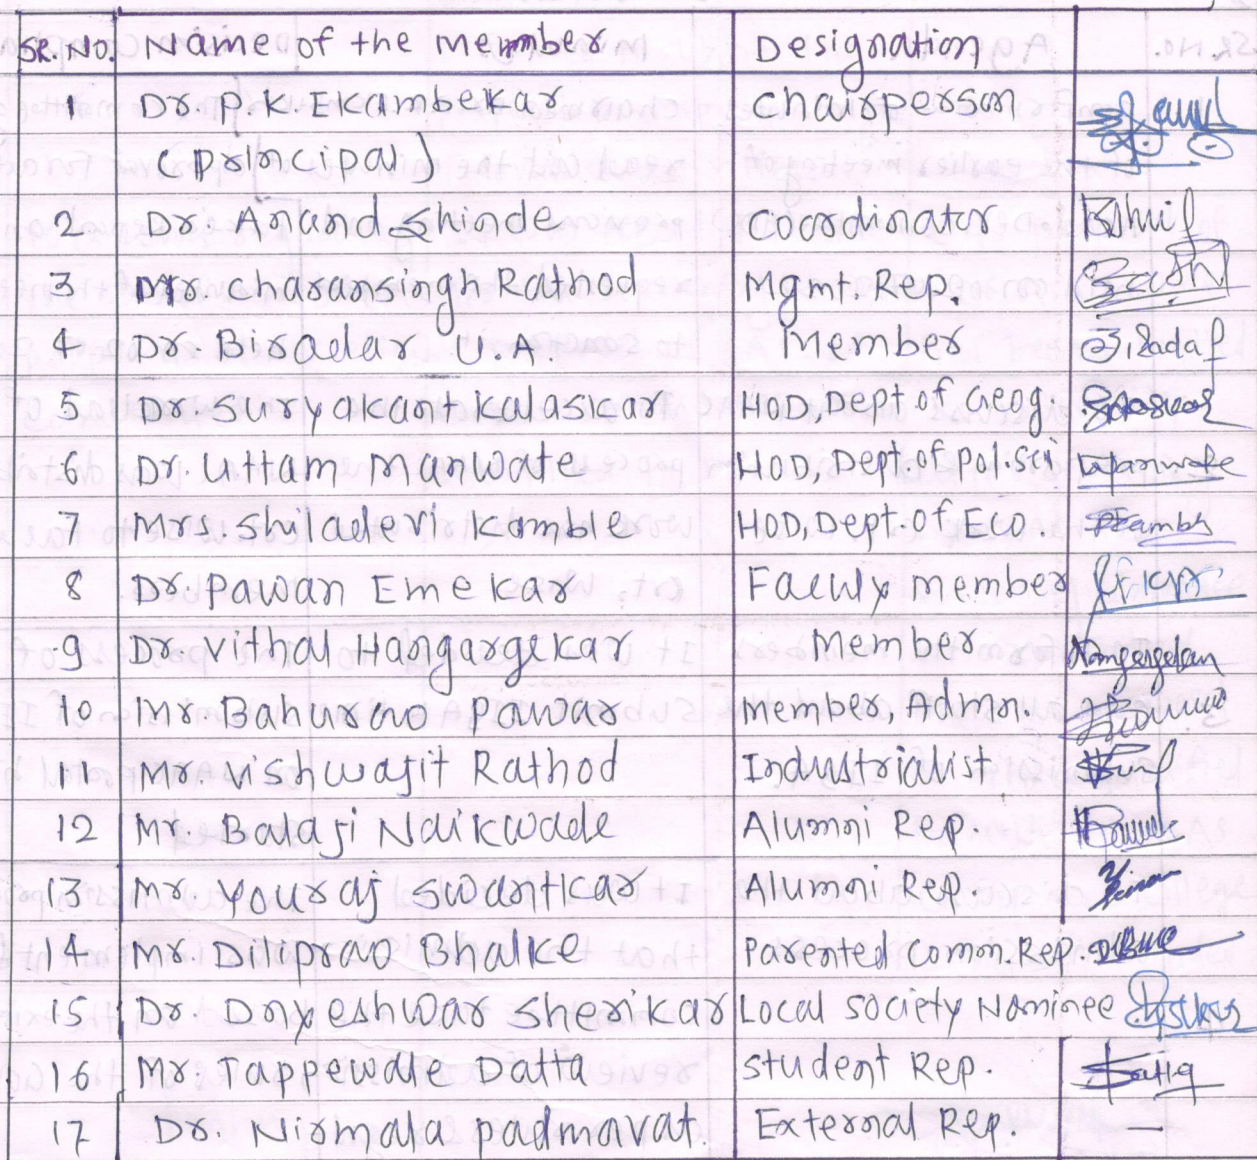 SR. No. Name of the member Designation
1 Dr. R.K. Ekambekar Chairperson
(principal)
2 Dr. Anand Shinde Coordinator
3 Mr. Charansingh Rathod Mgmt. Rep.
4 Dr. Biradar U.A. Member
5 Dr. Suryakant kalaskar HOD, Dept of Geog.
6 Dr. Uttam Manwate HoD, Dept. of pol. sci
7 Mrs. Shiladevi kamble HOD, Dept. of Eco.
8 Dr. Pawan Emekar Faculy member
9 Dr. Vithal Haggargekar Member
10 Mr. Baburao Pawar Member, Admn.
11 Mr. Vishwajit Rathod Industrialist
12 Mr. Balaji Naikwade Alumni Rep.
13 Mr. Youraj Suwartkar Alumni Rep
14 Mr. Datarao Bhalke Parented Comm. Rep.
15 Dr. Dnyeshwar Sherikar Local society Nominee
16 Mr. Tappewad Datta Student Rep.
17 Dr. Nirmala padmavat External Rep. —